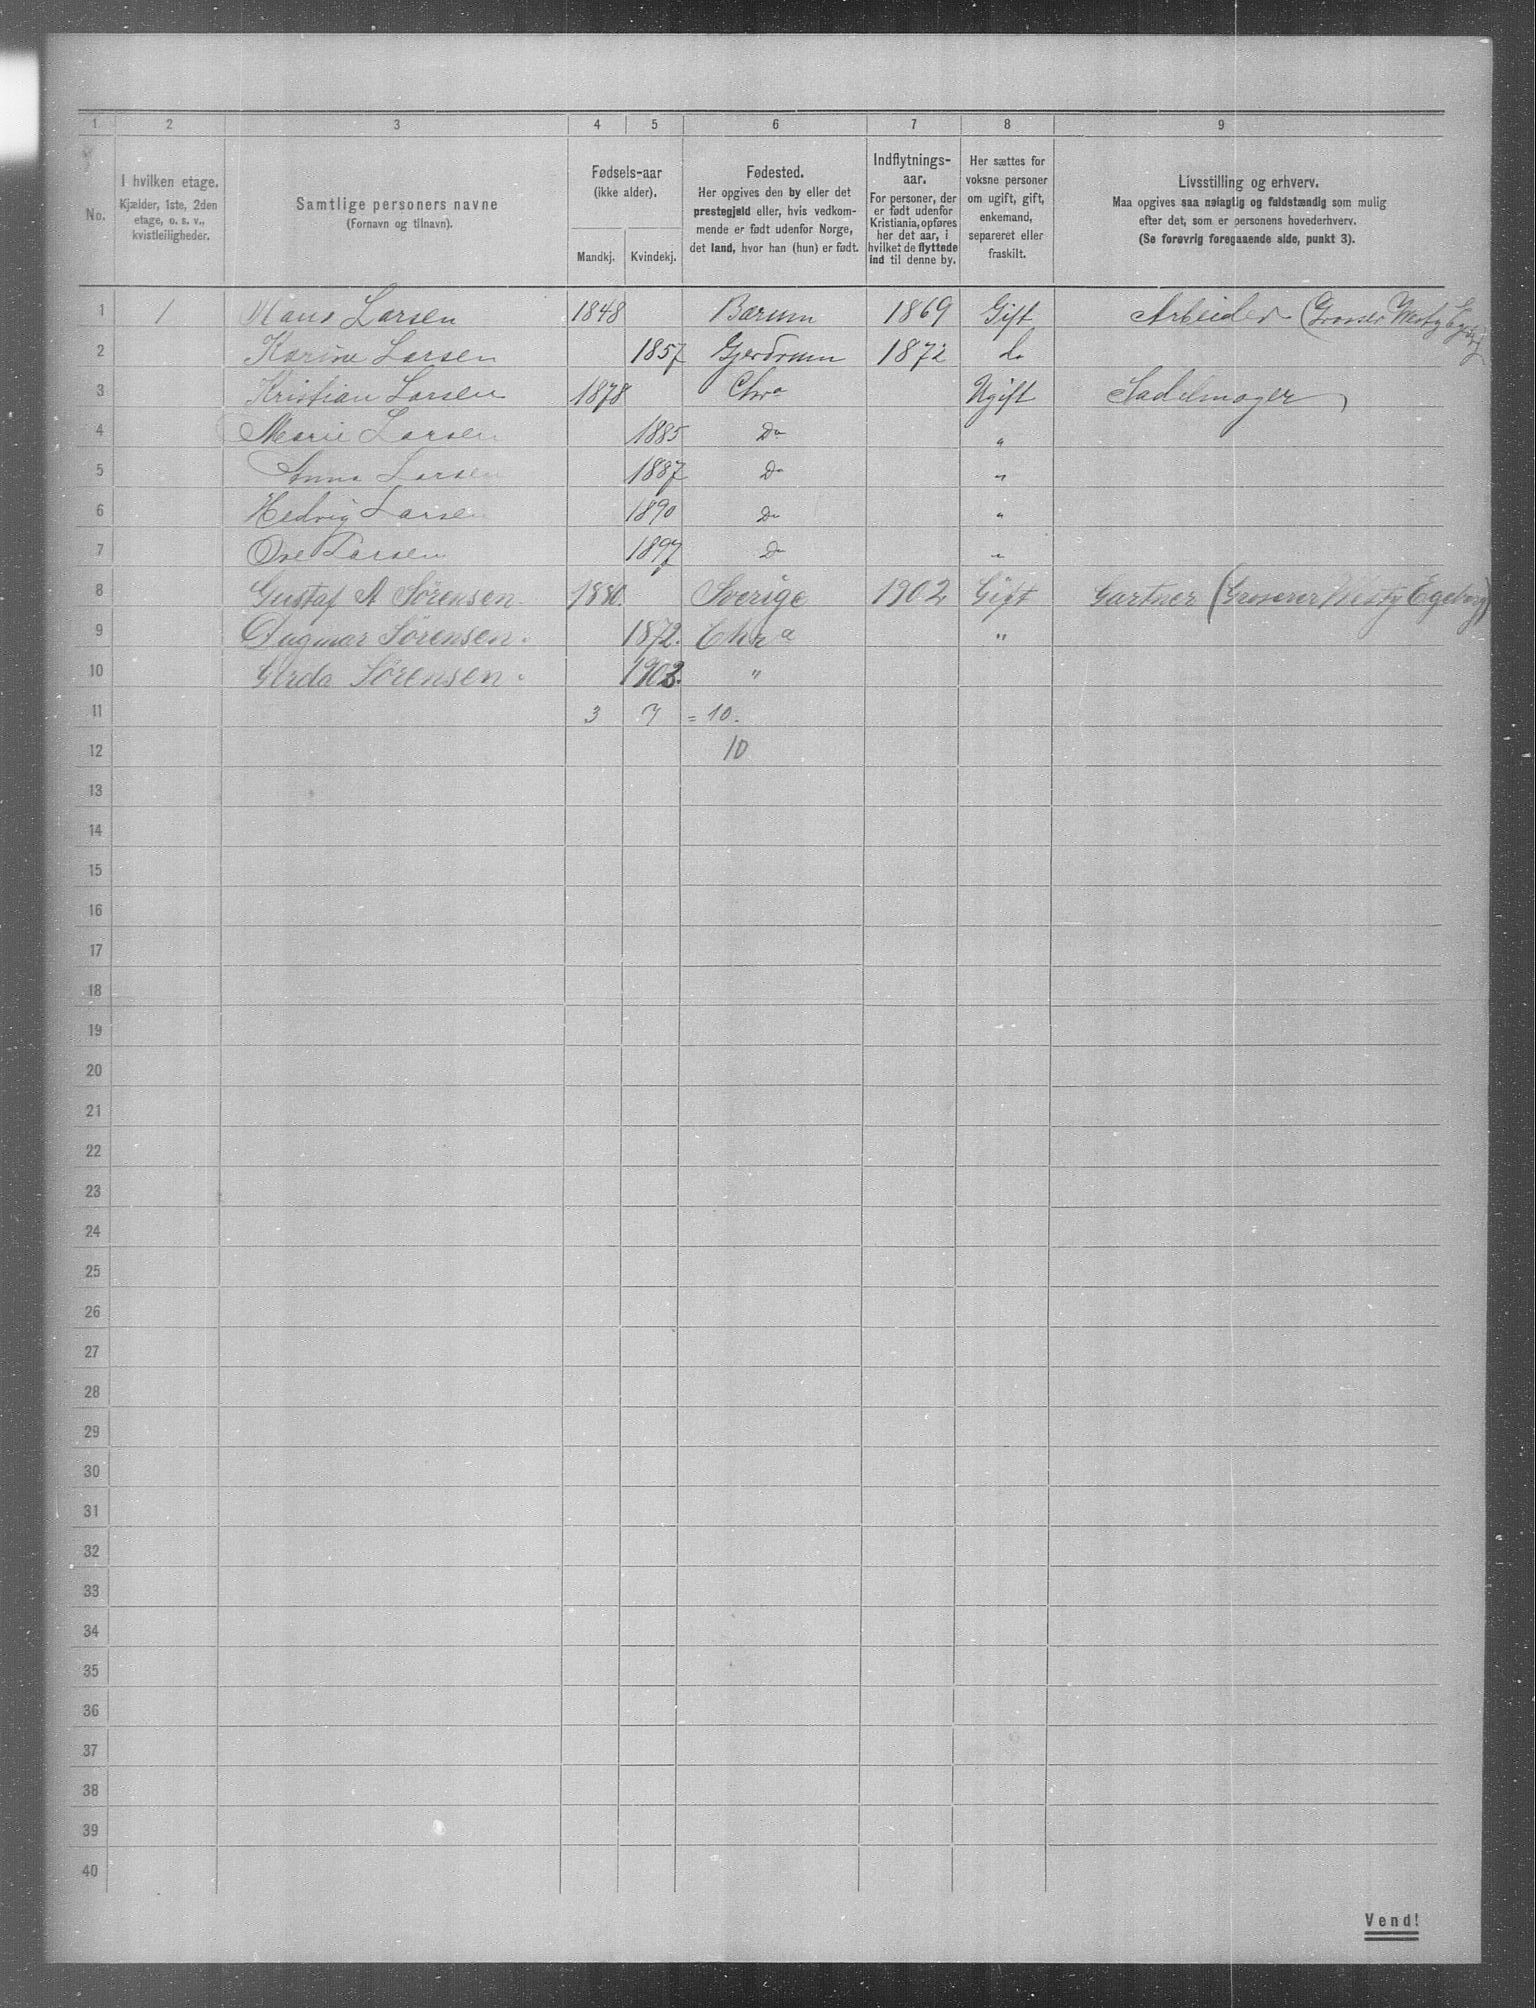 1 2 3 4 5 6 7 8 9
No.
I hvilken etage.
Kjælder, 1ste, 2den
etage, o. s. v.,
kvistleiligheder.
Samtlige personers navne
(Fornavn og tilnavn).
Fødsels-aar
(ikke alder).
Mandkj. Kvindekj.
Fødested.
Her opgives den by eller det
prestegjeld eller, hvis vedkom-
mende er født udenfor Norge,
det land, hvor han (hun) er født.
Indflytnings-
aar.
For personer, der
er født udenfor
Kristiania, opføres
her det aar, i
hvilket de flyttede
ind til denne by.
Her sættes for
voksne personer
om ugift, gift,
enkemand,
separeret eller
fraskilt.
Livsstilling og erhverv.
Maa opgives saa nøiagtig og fuldstændig som mulig
efter det, som er personens hovederhverv.
(Se forøvrig foregaaende side, punkt 3).
1 1 Hans Larsen 1848 Bærum 1869 Gift Arbeider (Grosser Westy Egeberg)
2 Karine Larsen 1857 Gjerdrum 1872 do
3 Kristian Larsen 1878 Chra Ugift Sadelmager
4 Marie Larsen 1885 Do "
5 Anna Larsen 1887 Do "
6 Hedvig Larsen 1890 Do "
7 Larsen 1897 Do "
8 Gustaf A Sörensen 1880. Sverige 1902 Gift Gartner (Grosserer Westy Egeberg)
9 Dagmar Sörensen. 1872. Chra "
10 Gerda Sörensen. 1902. "
11 3 7 = 10.
12 10
13
14
15
16
17
18
19
20
21
22
23
24
25
26
27
28
29
30
31
32
33
34
35
36
37
38
39
40
Vend!